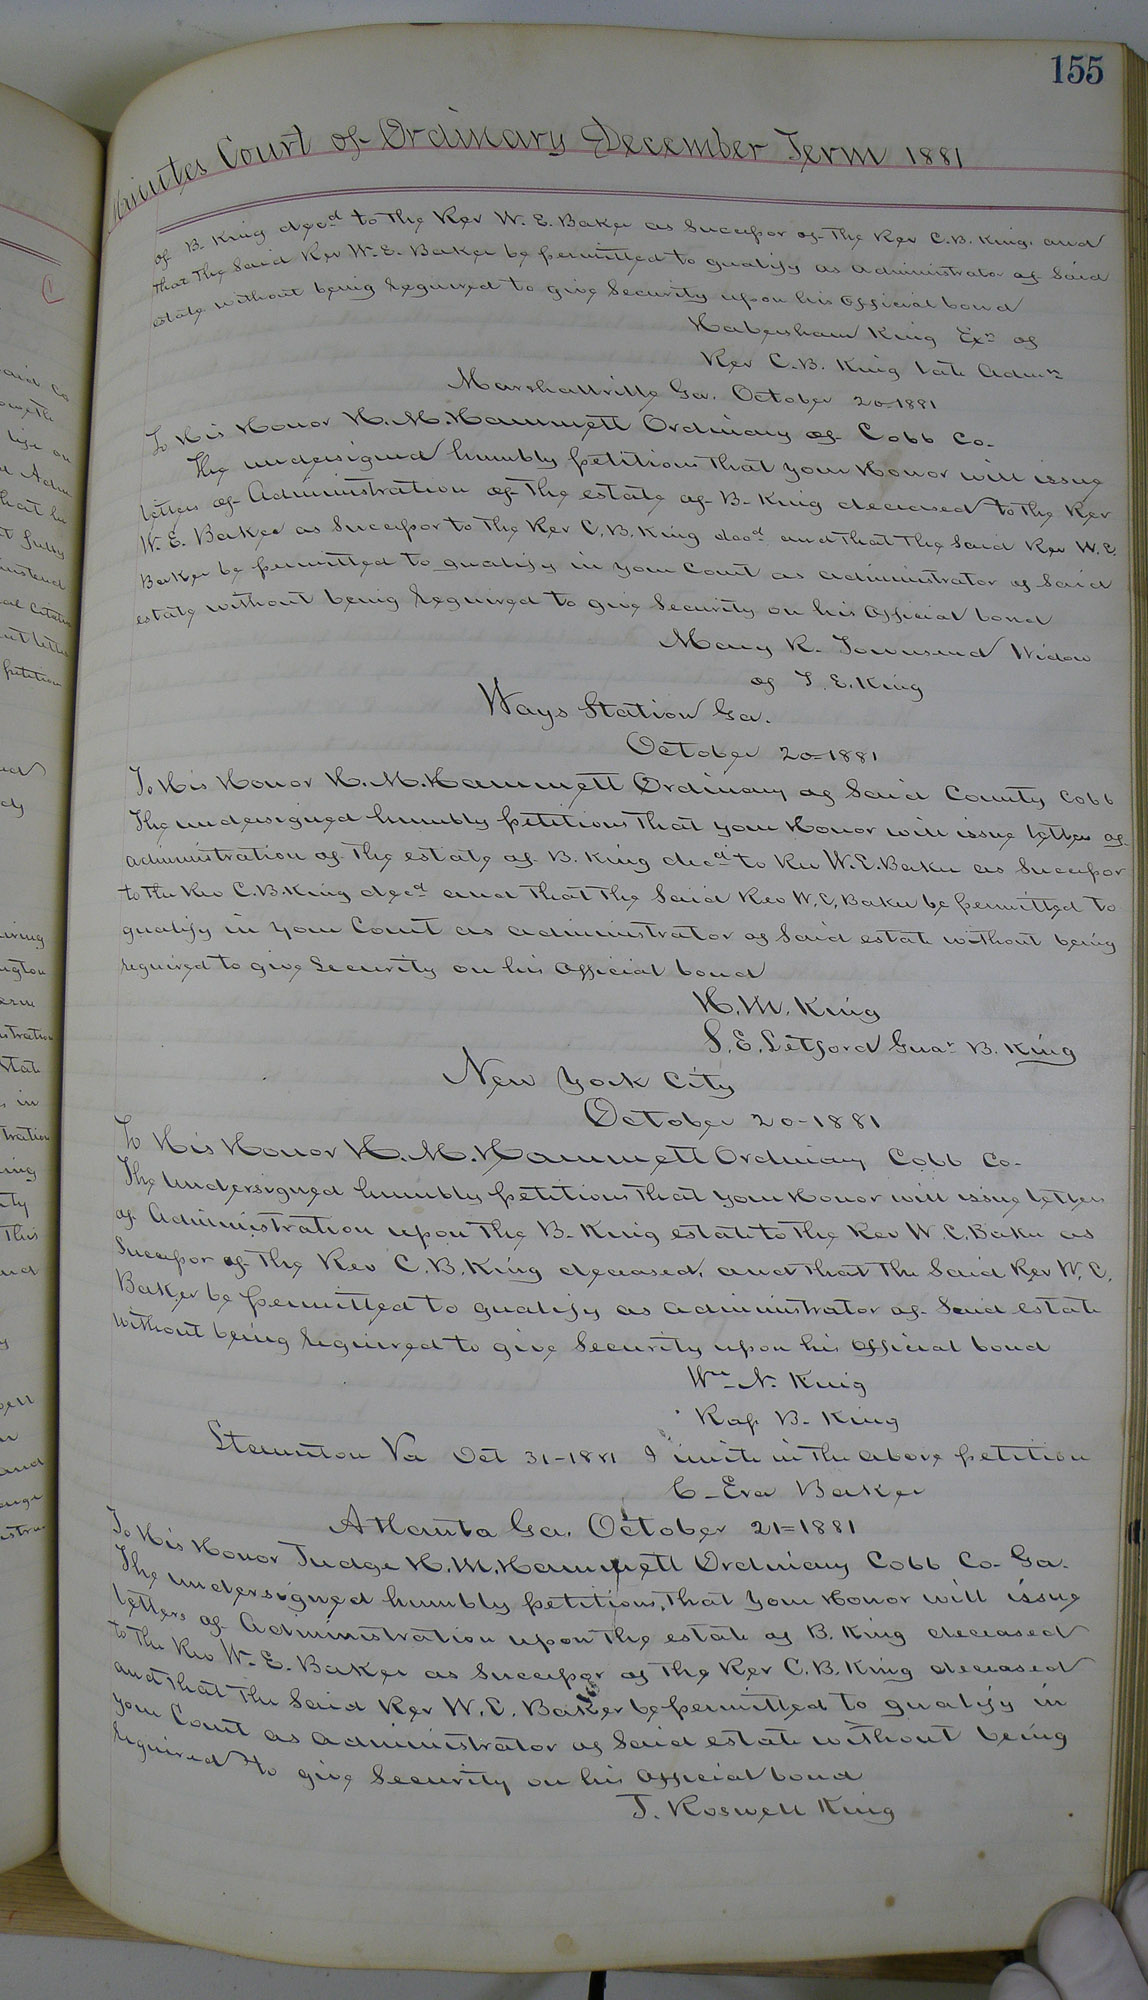 155
Minutes Court of Ordinary December Term 1881
of B. King decd to the Rev W. E. Baker as Successor of the Rev C.B. King. and
that the said Rev W. E. Baker be permitted to qualify as administrator of said
estate without being required to give Security upon his official bond
Habersham King Exr of
Rev C.B. King late Admr
Marshallville Ga. October 20-1881
To His Honor H. M. Hammett Ordinary of Cobb Co-
The undersigned humbly petitions that your Honor will issue
letters of Administration of the estate of B. King deceased to the Rev
W. E. Baker as Successor to the Rev C. B. King decd and that the said Rev W. E.
Baker be permitted to qualify in your Court as administrator of said
estate without being required to give Security on his official bond
Mary R. Townsend Widow
of T. E. King
Ways Station Ga.
October 20-1881
To His Honor H. M. Hammett Ordinary of Said County Cobb
The undersigned humbly petitions that your Honor will issue letters of
administration of the estate of B. King decd to Rev W. E. Baker as Successor
to the Rev C. B. King decd and that the Said Rev W. E. Baker be permitted to
qualify in your Court as administrator of said estate without being
required to give Security on his official bond
H. M. King
S. E. Letford Guar B. King
New York City
October 20-1881
To His Honor H. M. Hammett Ordinary Cobb Co-
The undersigned humbly petitions that your Honor will issue letters
of Administration upon the B. King estate to the Rev W. E. Baker as
Successor of the Rev C. B. King deceased, and that the Said Rev W. E.
Baker be permitted to qualify as administrator of said estate
without being required to give Security upon his official bond
Wm N. King
Ralp B. King
Staunton Va Oct 31-1881 I unite in the above petition
C- Eva Baker
Atlanta Ga. October 21=1881
To His Honor Judge H. M. Hammett Ordinary Cobb Co- Ga.
The undersigned humbly petitions, that your Honor will issue
letters of Administration upon the estate of B. King deceased
to the Rev W. E. Baker as Successor of the Rev C. B. King deceased
and that the said Rev W. E. Baker be permitted to qualify in
your Court as administrator of said estate without being
required to give Security on his official bond
J. Roswell King